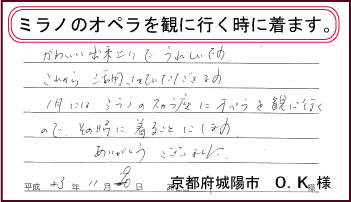 ミラノのオペラを観に行く時に着ます。
かわいい出来上りでうれしいです。
これから活用させていただきます。
1月には、ミラノのスカラ座にオペラを観に行く
ので、その時に着ることにします。
ありがとうございました。
平成 23 年 11 月 20 日 京都府城陽市 O.K 様
様